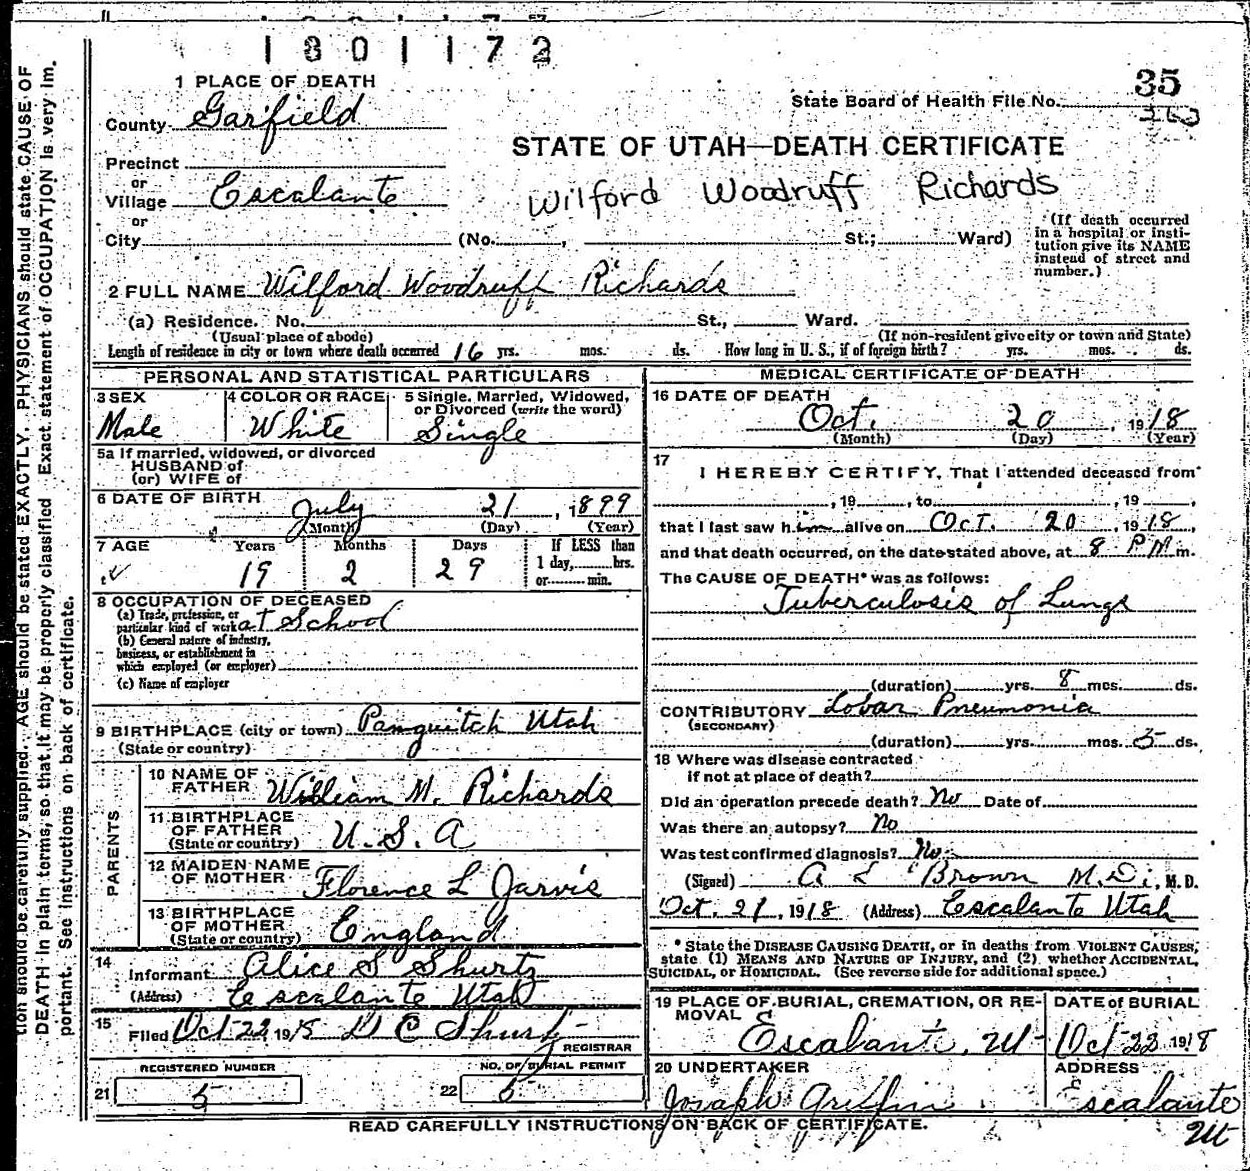 1301172
35
1 PLACE OF DEATH
State Board of Health File No. 363
County Garfield
STATE OF UTAH—DEATH CERTIFICATE
Precinct
or
Village Escalante
Wilford Woodruff Richards
or
City (No. , St.; Ward)
(If death occurred in a hospital or institution give its NAME instead of street and number.)
2 FULL NAME Wilford Woodruff Richards
(a) Residence. No. St., Ward.
(Usual place of abode) (If non-resident give city or town and State)
Length of residence in city or town where death occurred 16 yrs. mos. ds. How long in U. S., if of foreign birth? yrs. mos. ds.
PERSONAL AND STATISTICAL PARTICULARS
3 SEX 4 COLOR OR RACE 5 Single, Married, Widowed, or Divorced (write the word)
Male White Single
5a If married, widowed, or divorced
HUSBAND of
(or) WIFE of
6 DATE OF BIRTH July 21, 1899
(Month) (Day) (Year)
7 AGE Years Months Days If LESS than
19 2 29 1 day, hrs.
or min.
8 OCCUPATION OF DECEASED
(a) Trade, profession, or
particular kind of work at School
(b) General nature of industry,
business, or establishment in
which employed (or employer)
(c) Name of employer
9 BIRTHPLACE (city or town) Panguitch Utah
(State or country)
PARENTS
10 NAME OF FATHER William M. Richards
11 BIRTHPLACE OF FATHER (State or country) U. S. A
12 MAIDEN NAME OF MOTHER Florence L Jarvis
13 BIRTHPLACE OF MOTHER (State or country) England
14
Informant Alice S Shurtz
(Address) Escalante Utah
15
Filed Oct 22 1918
REGISTRAR
REGISTERED NUMBER NO. OF BURIAL PERMIT
21 5 22 5
MEDICAL CERTIFICATE OF DEATH
16 DATE OF DEATH
Oct. 20, 1918
(Month) (Day) (Year)
17
I HEREBY CERTIFY, That I attended deceased from
, 19 , to , 19 ,
that I last saw him alive on Oct. 20, 1918,
and that death occurred, on the date stated above, at 8 P M m.
The CAUSE OF DEATH* was as follows:
Tuberculosis of Lungs
(duration) yrs. 8 mos. ds.
CONTRIBUTORY Lobar Pneumonia
(SECONDARY)
(duration) yrs. mos. 5 ds.
18 Where was disease contracted
if not at place of death?
Did an operation precede death? No Date of
Was there an autopsy? No
Was test confirmed diagnosis? No
(Signed) A L Brown M.D., M.D.
Oct. 21, 1918 (Address) Escalante Utah
* State the DISEASE CAUSING DEATH, or in deaths from VIOLENT CAUSES,
state (1) MEANS AND NATURE OF INJURY, and (2) whether ACCIDENTAL,
SUICIDAL, or HOMICIDAL. (See reverse side for additional space.)
19 PLACE OF BURIAL, CREMATION, OR REMOVAL DATE of BURIAL
Escalante, Ut Oct 22 1918
20 UNDERTAKER ADDRESS
Joseph Griffin Escalante
Ut
READ CAREFULLY INSTRUCTIONS ON BACK OF CERTIFICATE.
tion should be carefully supplied. AGE should be stated EXACTLY. PHYSICIANS should state CAUSE OF
DEATH in plain terms, so that it may be properly classified. Exact statement of OCCUPATION is very im-
portant. See instructions on back of certificate.